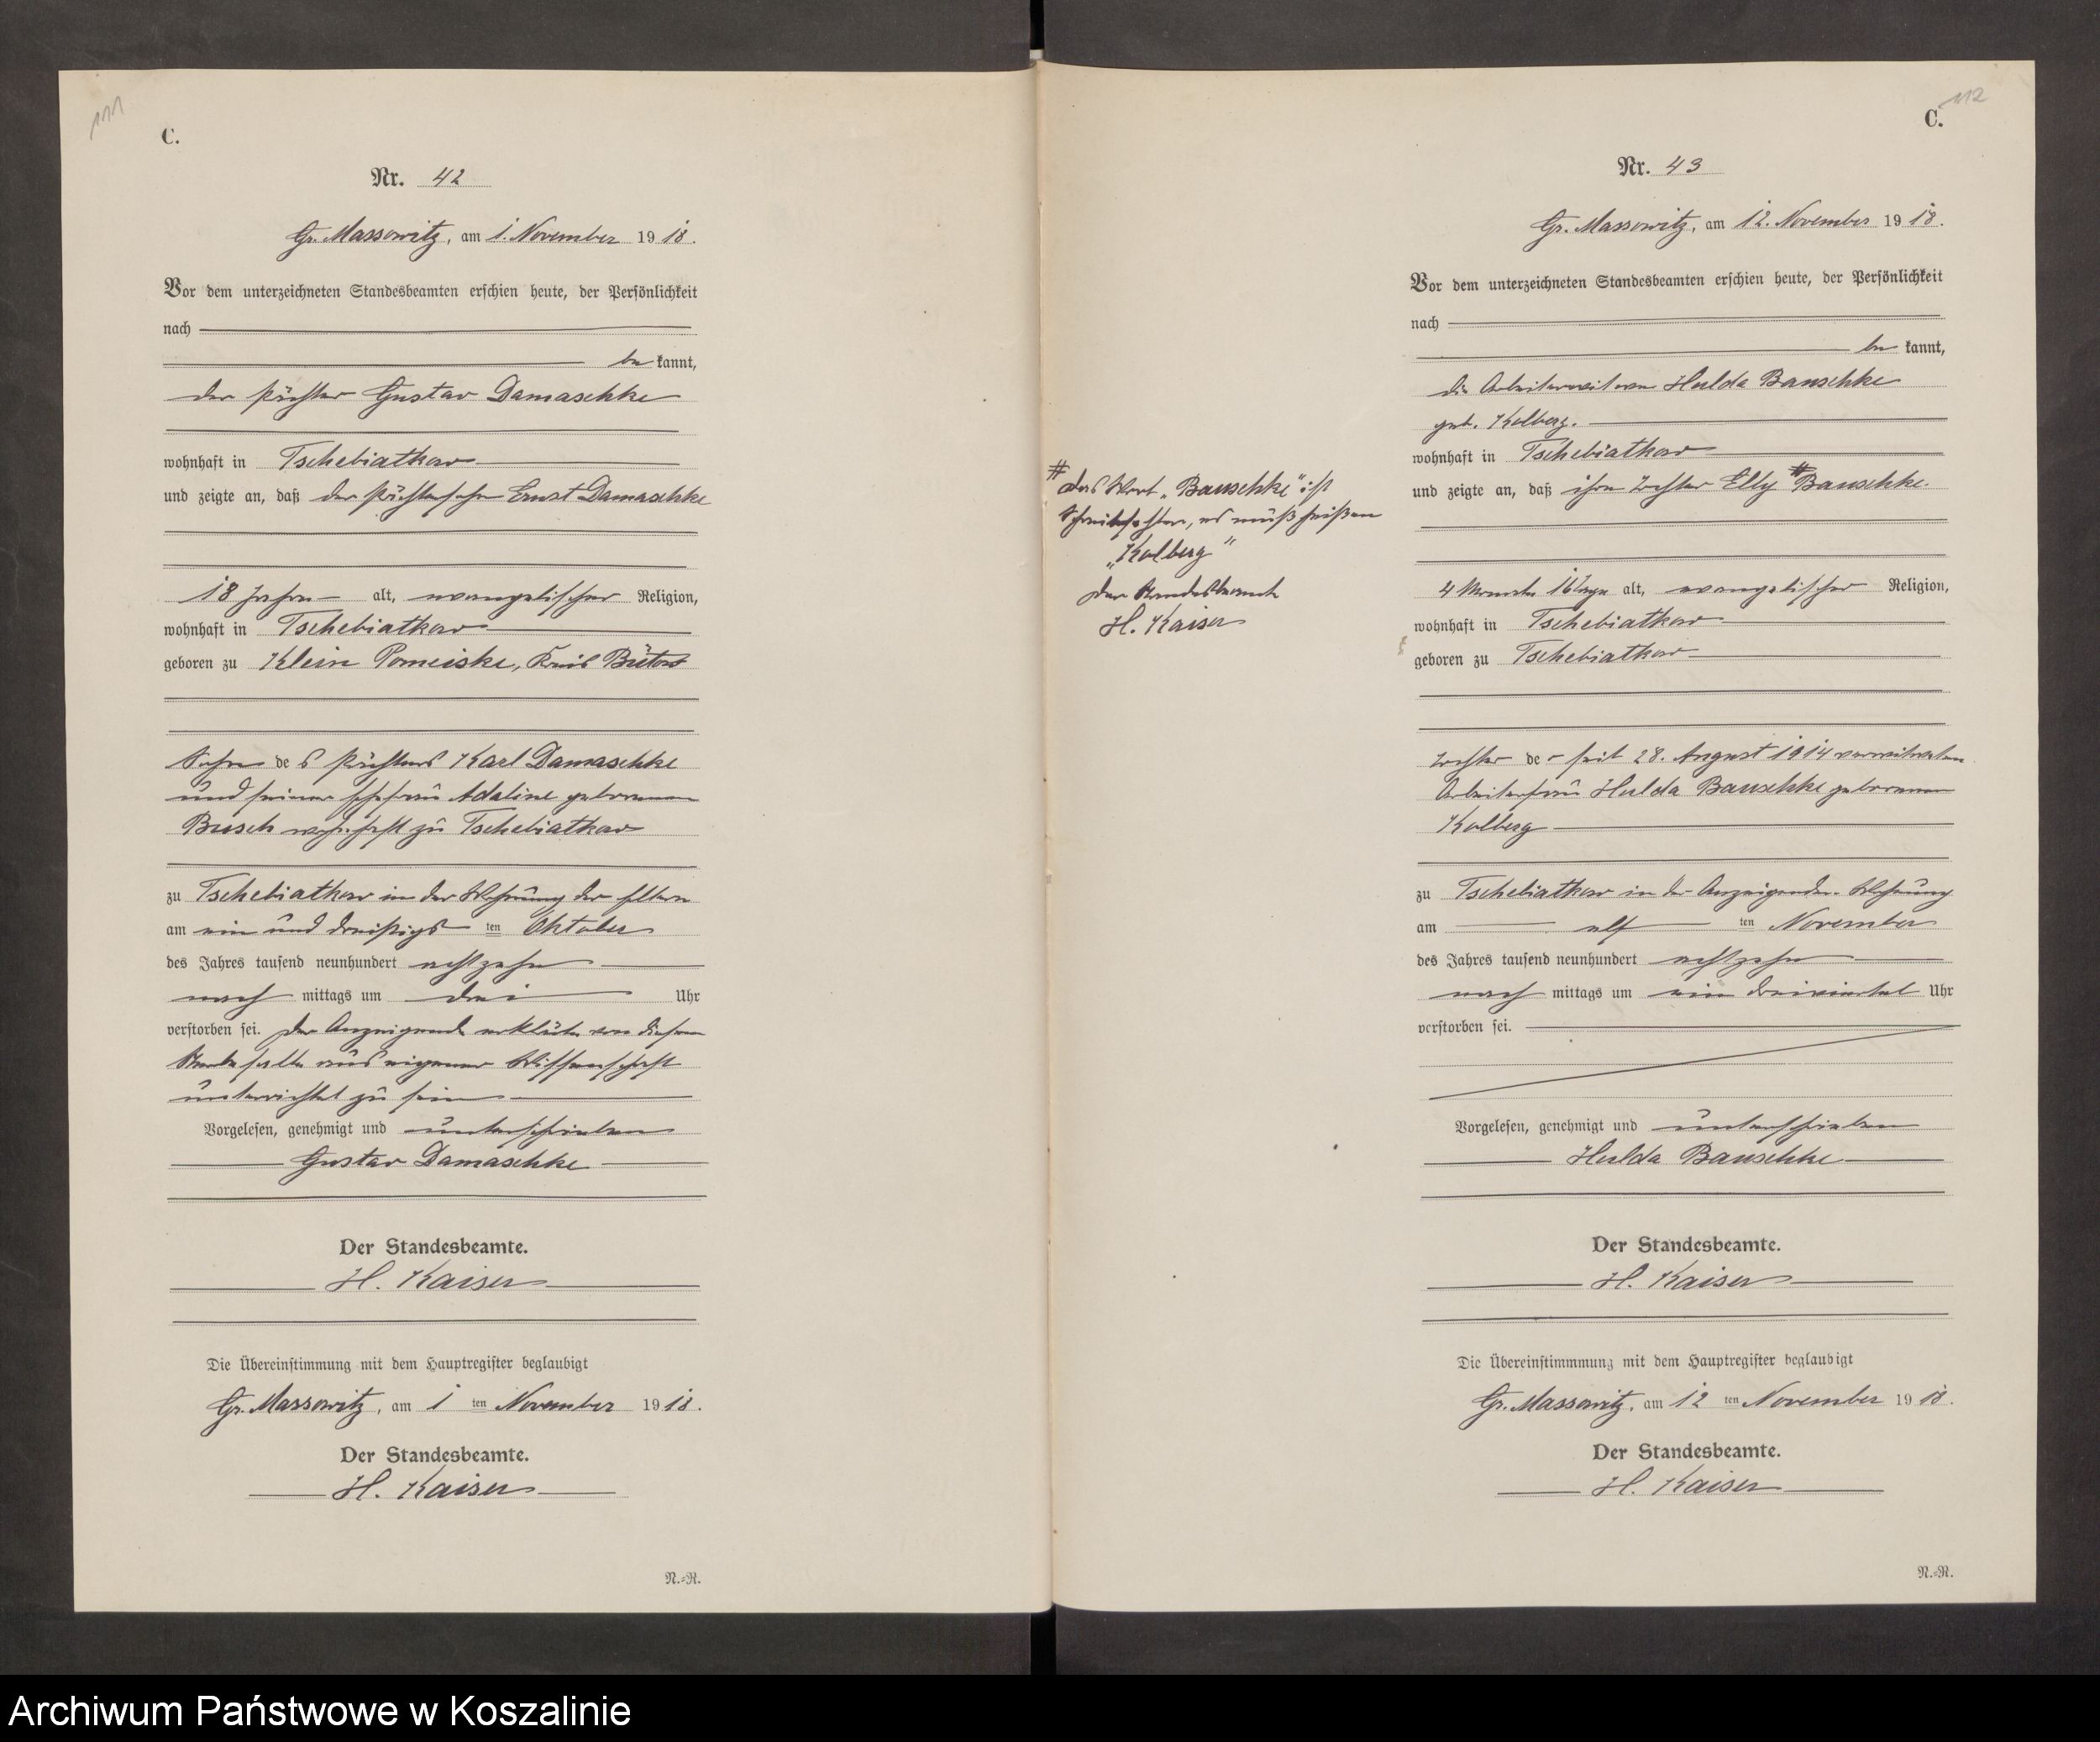 111
C.
Nr. 42
Gr. Massowitz, am 1. November 1918.
Vor dem unterzeichneten Standesbeamten erschien heute, der Persönlichkeit
nach
be kannt,
der Pächter Gustav Damaschke
wohnhaft in Tschebiatkow
und zeigte an, daß der Pächtersohn Ernst Damaschke
18 Jahre alt, evangelischer Religion,
wohnhaft in Tschebiatkow
geboren zu Klein Pomeiske, Kreis Bütow
Sohn des Pächters Karl Damaschke
und seiner Ehefrau Adaline geborenen
Busch wohnhaft zu Tschebiatkow
zu Tschebiatkow in der Wohnung der Eltern
am ein und dreißigsten Oktober
des Jahres tausend neunhundert achtzehn
nach mittags um drei Uhr
verstorben sei. Der Anzeigende erklärte von diesem
Sterbefalle aus eigener Wissenschaft
unterrichtet zu sein
Vorgelesen, genehmigt und unterschrieben
Gustav Damaschke
Der Standesbeamte.
H. Kaiser
Die Übereinstimmung mit dem Hauptregister beglaubigt
Gr. Massowitz, am 1 ten November 1918.
Der Standesbeamte.
H. Kaiser
N.-R.
112
C.
Nr. 43
Gr. Massowitz, am 12. November 1918.
Vor dem unterzeichneten Standesbeamten erschien heute, der Persönlichkeit
nach
be kannt,
die Arbeiterwitwe Hulda Bauschke
geb. Kolberg.
wohnhaft in Tschebiatkow
und zeigte an, daß ihre Tochter Elly # Bauschke.
# Das Wort „Bauschke" ist
Schreibfehler, es muß heißen
„Kolberg"
Der Standesbeamte
H. Kaiser
4 Monate 16 Tage alt, evangelischer Religion,
wohnhaft in Tschebiatkow
geboren zu Tschebiatkow
Tochter der seit 28. August 1914 verwitweten
Arbeiterfrau Hulda Bauschke geborenen
Kolberg
zu Tschebiatkow in der Anzeigenden Wohnung
am elf ten November
des Jahres tausend neunhundert achtzehn
nach mittags um ein dreiviertel Uhr
verstorben sei.
Vorgelesen, genehmigt und unterschrieben
Hulda Bauschke
Der Standesbeamte.
H. Kaiser
Die Übereinstimmmung mit dem Hauptregister beglaubigt
Gr. Massowitz, am 12 ten November 1918.
Der Standesbeamte.
H. Kaiser
N.-R.
Archiwum Państwowe w Koszalinie